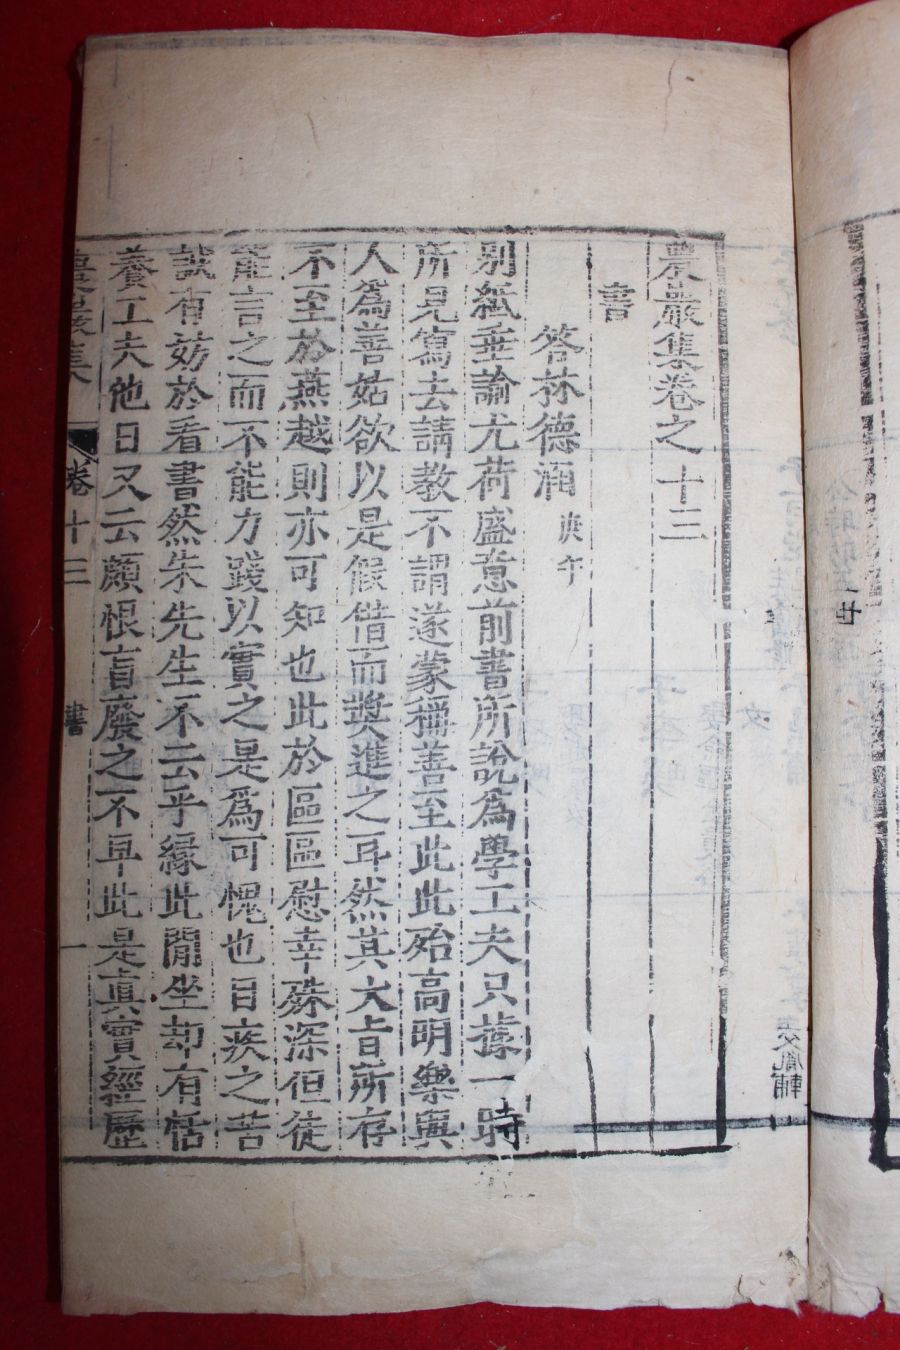 農巖集卷之十三
書
答林德涵 庚午
別紙垂諭尤荷盛意前書所說為學工夫只據一時
所見寫去請教不謂遂蒙稱善至此此殆高明樂與
人為善姑欲以是假借而奬進之耳然其大旨所存
不至於燕越則亦可知也此於區區慰幸殊深但徒
能言之而不能力踐以實之是為可愧也目疾之苦
誠有妨於看書然朱先生不云乎緣此閒坐却有恬
養工夫他日又云頗恨盲廢之不早此是眞實經歷
農巖集 卷十三 書 一